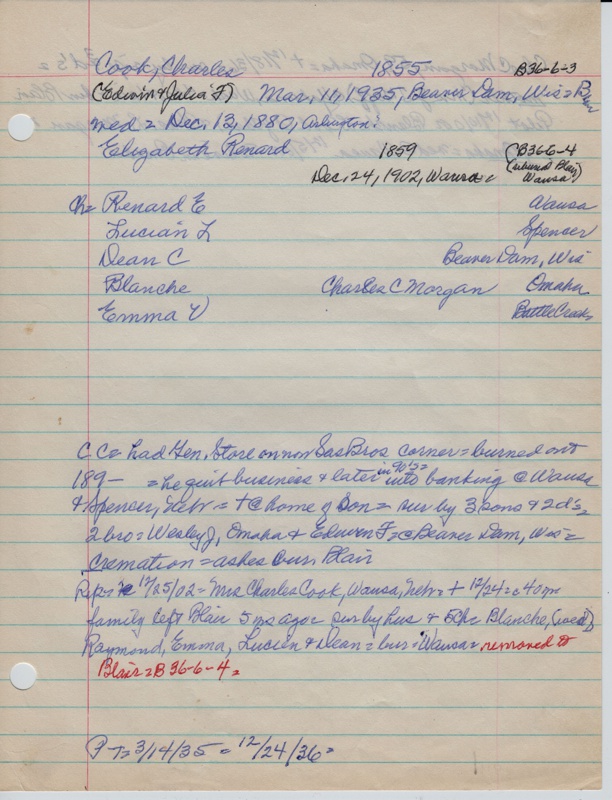 Cook, Charles 1855 B36-6-3
(Edwin & Julia F) Mar, 11, 1935, Beaver Dam, Wis = Blair
med = Dec. 13, 1880, Arlington?
Elizabeth Renard 1859 B36-6-4
Dec. 24, 1902, Wausa = Blair Wausa)
Ch = Renard E Wausa
Lucian L Spencer
Dean C Beaver Dam, Wis
Blanche Charles C Morgan Omaha
Emma V Battle Creek
C C = had Gen. Store on now Sas Bros corner = burned out
189- = he quit business & later in 90's = into banking @ Wausa
& Spencer, Nebr = + @ home of Son = sur by 3 sons & 2 d's =
2 bro = Wesley J, Omaha & Edwin F = @ Beaver Dam, Wis =
cremation = ashes bur. Blair
12/25/02 = Mrs Charles Cook, Wausa, Nebr = + 12/24 = @ 40 pm
family left Blair 5 ms ago = sur by hus & 5 Ch = Blanche, (wed)
Raymond, Emma, Lucien & Dean = bur = Wausa = removed to
Blair = B 36-6-4 =
P T = 3/14/35 = 12/24/36 =